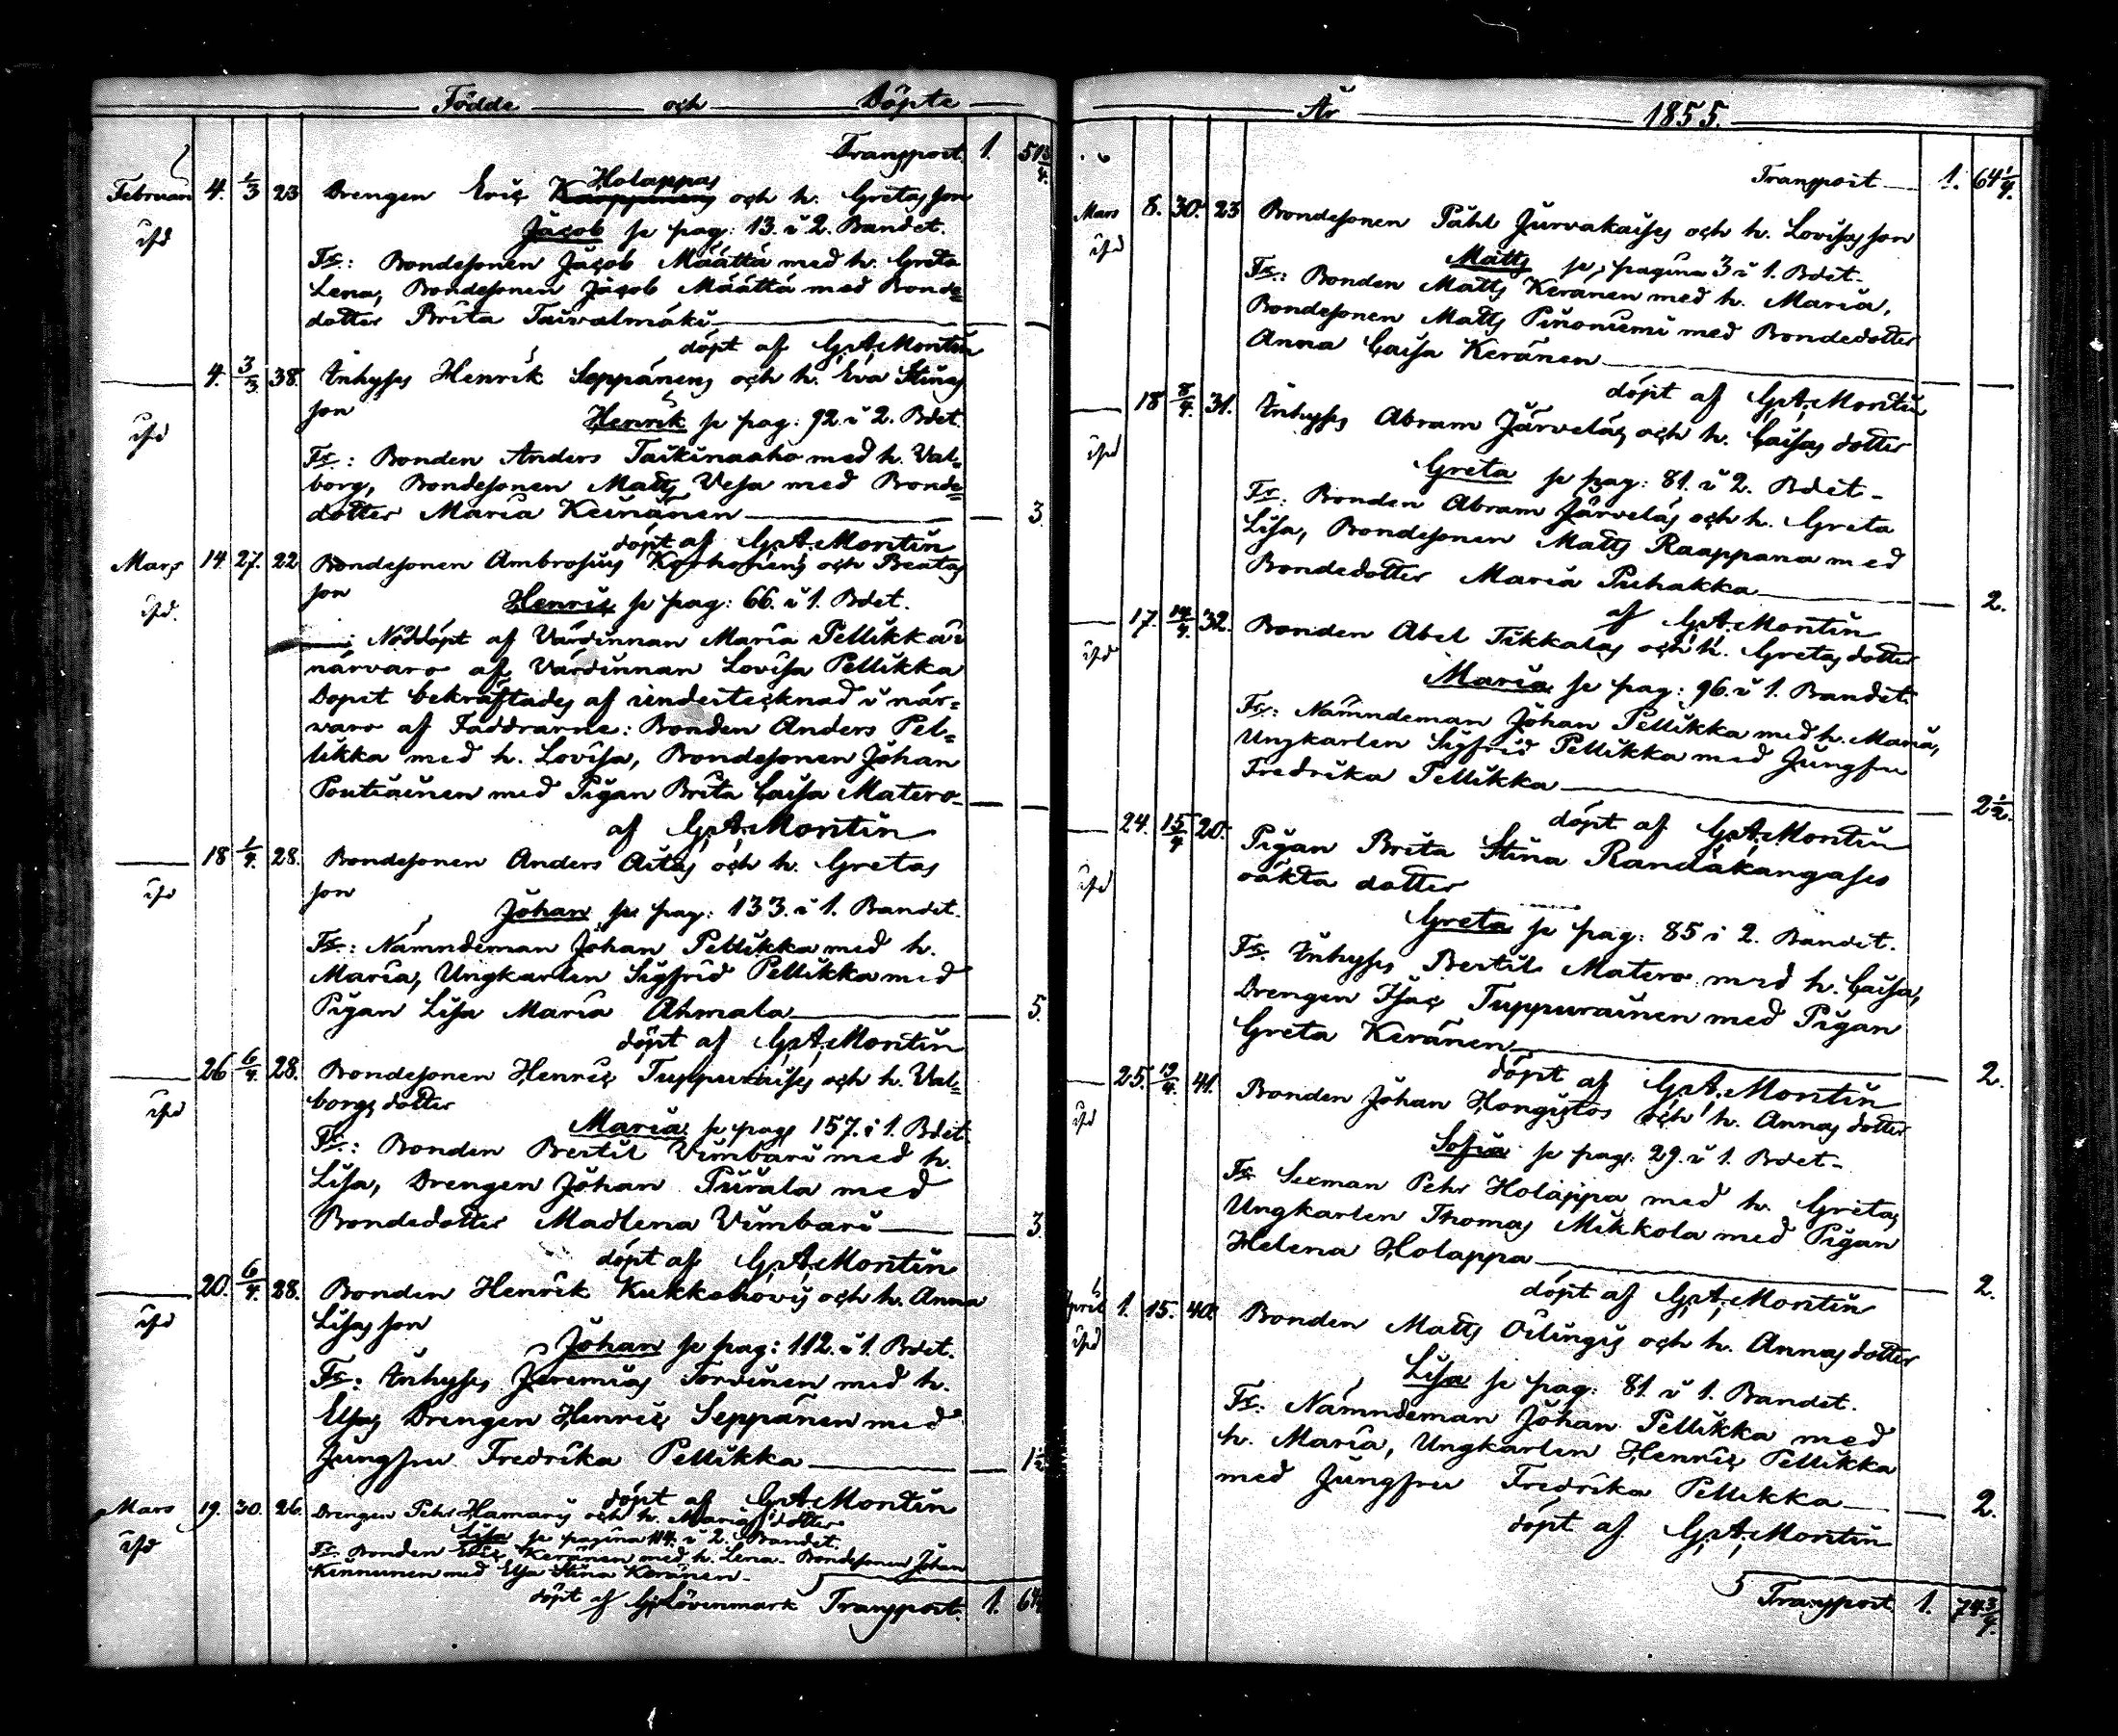 Födde och Döpte
Transport. 1. 51 3/4.
Februari 4. 1/3 23 Drengen Eric Holappas och h. Gretas son
ifd Jacob se pag: 13. i 2. Bandet.
Fr.: Bondesonen Jacob Määttä med h. Greta
Lena, Bondesonen Jacob Määttä med Bonde=
dotter Brita Taivalmäki
döpt af G. A. Montin
4. 3/3. 38. Inhyses Henrik Seppänens och h. Eva Stinas
son
ifd Henrik se pag: 92. i 2. Bdet.
Fr.: Bonden Anders Taikinaaho med h. Val=
borg, Bondesonen Matts Vesa med Bonde=
dotter Maria Keinänen 3.
döpt af G. A. Montin
Mars 14. 27. 22 Bondesonen Ambrosius Korhonens och Beatas
son
ifd. Henric se pag: 66. i 1. Bdet.
Nöddöpt af Värdinnan Maria Pellikka i
närvaro af Värdinnan Lovisa Pellikka
Dopet bekräftades af undertecknad i när=
varo af Faddrarne: Bonden Anders Pel=
likka med h. Lovisa, Bondesonen Johan
Poutiainen med Pigan Brita Caisa Matero
af G. A. Montin
18 1/4. 28. Bondesonen Anders Aitas och h. Gretas
ifd son
Johan se pag: 133. i 1. Bandet.
Fr.: Nämndeman Johan Pellikka med h.
Maria, Ungkarlen Sigfrid Pellikka med
Pigan Lisa Maria Ahmala 5.
döpt af G. A. Montin
26 6/4. 28. Bondesonen Henric Tuppuraises och h. Val=
ifd borgs dotter
Maria se pag 157. i 1. Bdet.
Fr.: Bonden Bertil Vimbari med h.
Lisa, Drengen Johan Piirala med
Bondedotter Madlena Vimbari 3.
döpt af G. A. Montin
20. 6/4. 28. Bonden Henrik Kukkohovis och h. Anna
ifd Lisas son
Johan se pag: 112. i 1. Bdet.
Fr.: Inhyses Jeremias Torvinen med h.
Elsa, Drengen Henric Seppänen med
Jungfru Fredrika Pellikka 1 1/2
döpt af G. A. Montin
Mars 19. 30. 26. Drengen Pehr Hamaris och h. Marias dotter
ifd Lisa se pagina 114. i 2. Bandet.
Fr. Bonden Eric Keränen med h. Lena. Bondesonen Johan
Kinnunen med Elsa Stina Keränen.
döpt af G. Lövenmark Transport. 1. 64
År 1855.
Transport 1. 64 1/4.
Mars 8. 30. 23 Bondesonen Påhl Jurvakaises och h. Lovisas son
ifd Matts se pagina 3 i 1. Bdet.
Fr: Bonden Matts Keränen med h. Maria,
Bondesonen Matts Piironiemi med Bondedotter
Anna Caisa Keränen
döpt af G. A. Montin
18 8/4. 31. Inhyses Abram Järveläs och h. Caisas dotter
ifd Greta se pag: 81. i 2. Bdet.
Fr: Bonden Abram Järveläs och h. Greta
Lisa, Bondesonen Matts Raappana med
Bondedotter Maria Puhakka 2.
af G. A. Montin
17. 14/4. 32. Bonden Abel Tikkalas och h. Gretas dotter
ifd Maria se pag: 96. i 1. Bandet.
Fr: Nämndeman Johan Pellikka med h. Maria,
Ungkarlen Sigfrid Pellikka med Jungfru
Fredrika Pellikka 2 1/2.
döpt af G. A. Montin
24. 15/4 20. Pigan Brita Stina Randakangases
ifd oäkta dotter
Greta se pag: 85 i 2. Bandet.
Fr. Inhyses Bertil Matero med h. Caisa,
Drengen Isac Tuppurainen med Pigan
Greta Keränen 2.
döpt af G. A. Montin
25. 19/4. 41. Bonden Johan Hongistos och h. Annas dotter
ifd Sofia se pag. 29. i 1. Bdet.
Fr Sexman Pehr Holappa med h. Greta,
Ungkarlen Thomas Mikkola med Pigan
Helena Holappa 2.
döpt af G. A. Montin
April 1. 15. 40. Bonden Matts Oilingis och h. Annas dotter
ifd Lisa se pag: 81 i 1. Bandet.
Fr. Nämndeman Johan Pellikka med
h. Maria, Ungkarlen Henric Pellikka
med Jungfru Fredrika Pellikka 2.
döpt af G. A. Montin
Transport. 1. 74 3/4.